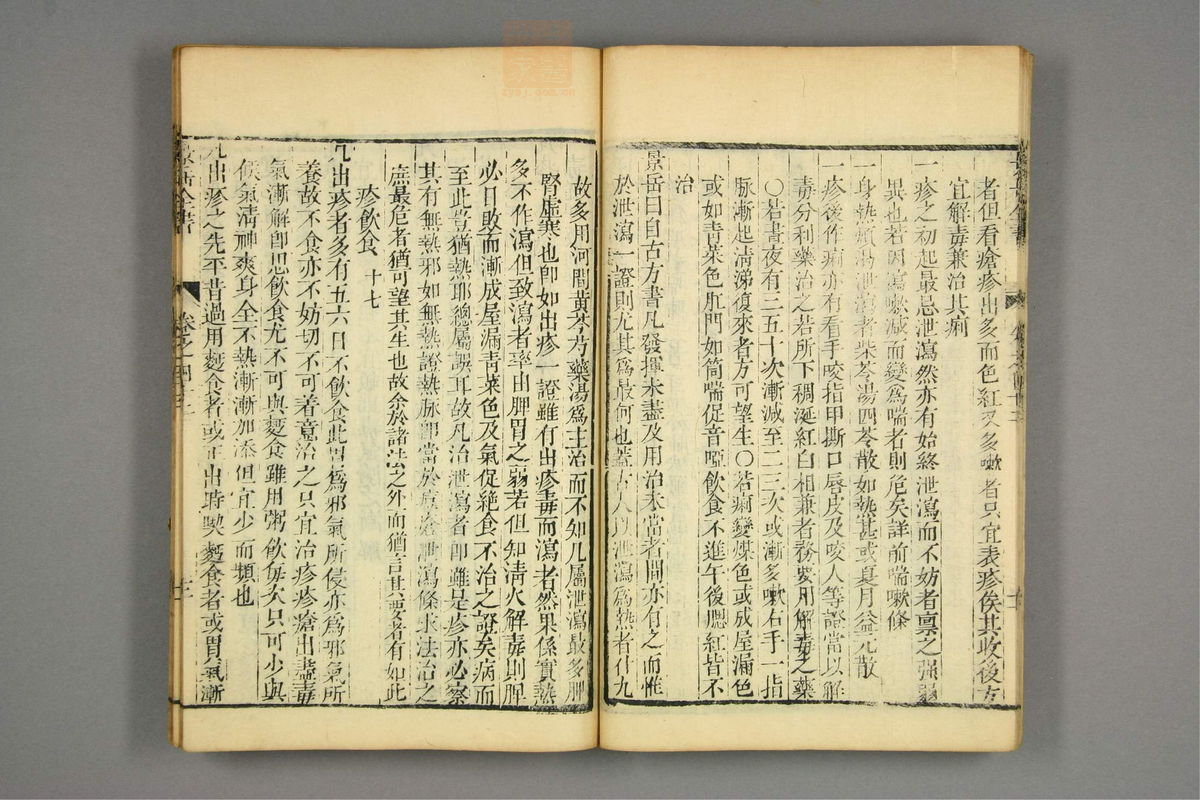 者但看瘡疹出多而色紅又多嗽者只宜表疹俟其收後方
宜解毒兼治其痢
一疹之初起最忌泄瀉然亦有始終泄瀉而不妨者禀之强弱
異也若因瀉嗽減而變為喘者則危矣詳前喘嗽條
一身熱煩渴泄瀉者柴苓湯四苓散如熱甚或夏月益元散
一疹後作痢亦有看手咬指甲撕口唇皮及咬人等證當以解
毒分利藥治之若所下稠涎紅白相兼者務要用解毒之藥
○若晝夜有三五十次漸減至二三次或漸多嗽右手一指
脈漸起清涕復來者方可望生○若痢變煤色或成屋漏色
或如青菜色肛門如筒喘促音啞飲食不進午後腮紅皆不
治
景岳曰自古方書凡發揮未盡及用治未當者間亦有之而惟
於泄瀉一證則尤其為最何也蓋古人以泄瀉為熱者什九
故多用河間黃芩芍藥湯為主治而不知凡屬泄瀉最多脾
腎虛寒也即如出疹一證雖有出疹毒而瀉者然果係實熱
多不作瀉但致瀉者率由脾胃之弱若但知清火解毒則脾
必日敗而漸成屋漏青菜色及氣促絕食不治之證矣病而
至此豈猶熱耶總屬誤耳故凡治泄瀉者即雖是疹亦必察
其有無熱邪如無熱證熱脈即當於痘瘡泄瀉條求法治之
庶最危者猶可望其生也故余於諸法之外而猶言其要者有如此
疹飲食 十七
凡出疹者多有五六日不飲食此胃為邪氣所侵亦為邪氣所
養故不食亦不妨切不可着意治之只宜治疹疹瘡出盡毒
氣漸解即思飲食尤不可與麵食雖用粥飲每次只可少與
候氣清神爽身全不熱漸漸加添但宜少而頻也
凡出疹之先平昔過用麵食者或正出時喫麵食者或胃氣漸
景岳全書
卷之四十三